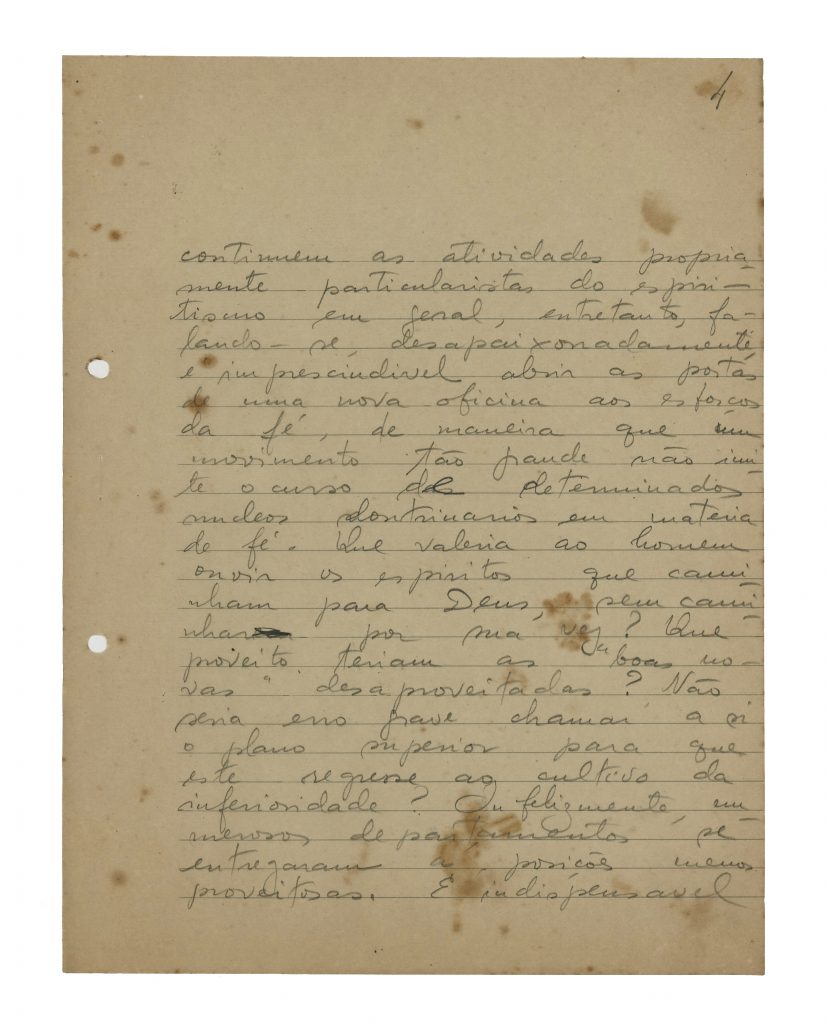 4
continuem as atividades propria-
mente particularistas do espiri-
tismo em geral, entretanto, fa-
lando-se desapaixonadamente,
é imprescindivel abrir as portas
de uma nova oficina aos esforços
da fé, de maneira que um
movimento tão grande não imi-
te o curso de determinados
nucleos doutrinarios em materia
de fé. Que valeria ao homem
ouvir os espiritos que cami-
nham para Deus, sem cami-
nhar por sua vez? Que
proveito teriam as "boas no-
vas" desaproveitadas? Não
seria erro grave chamar a si
o plano superior para que
este regresse ao cultivo da
inferioridade? Infelizmente, nu-
merosos departamentos se
entregaram a posições menos
proveitosas. É indispensavel